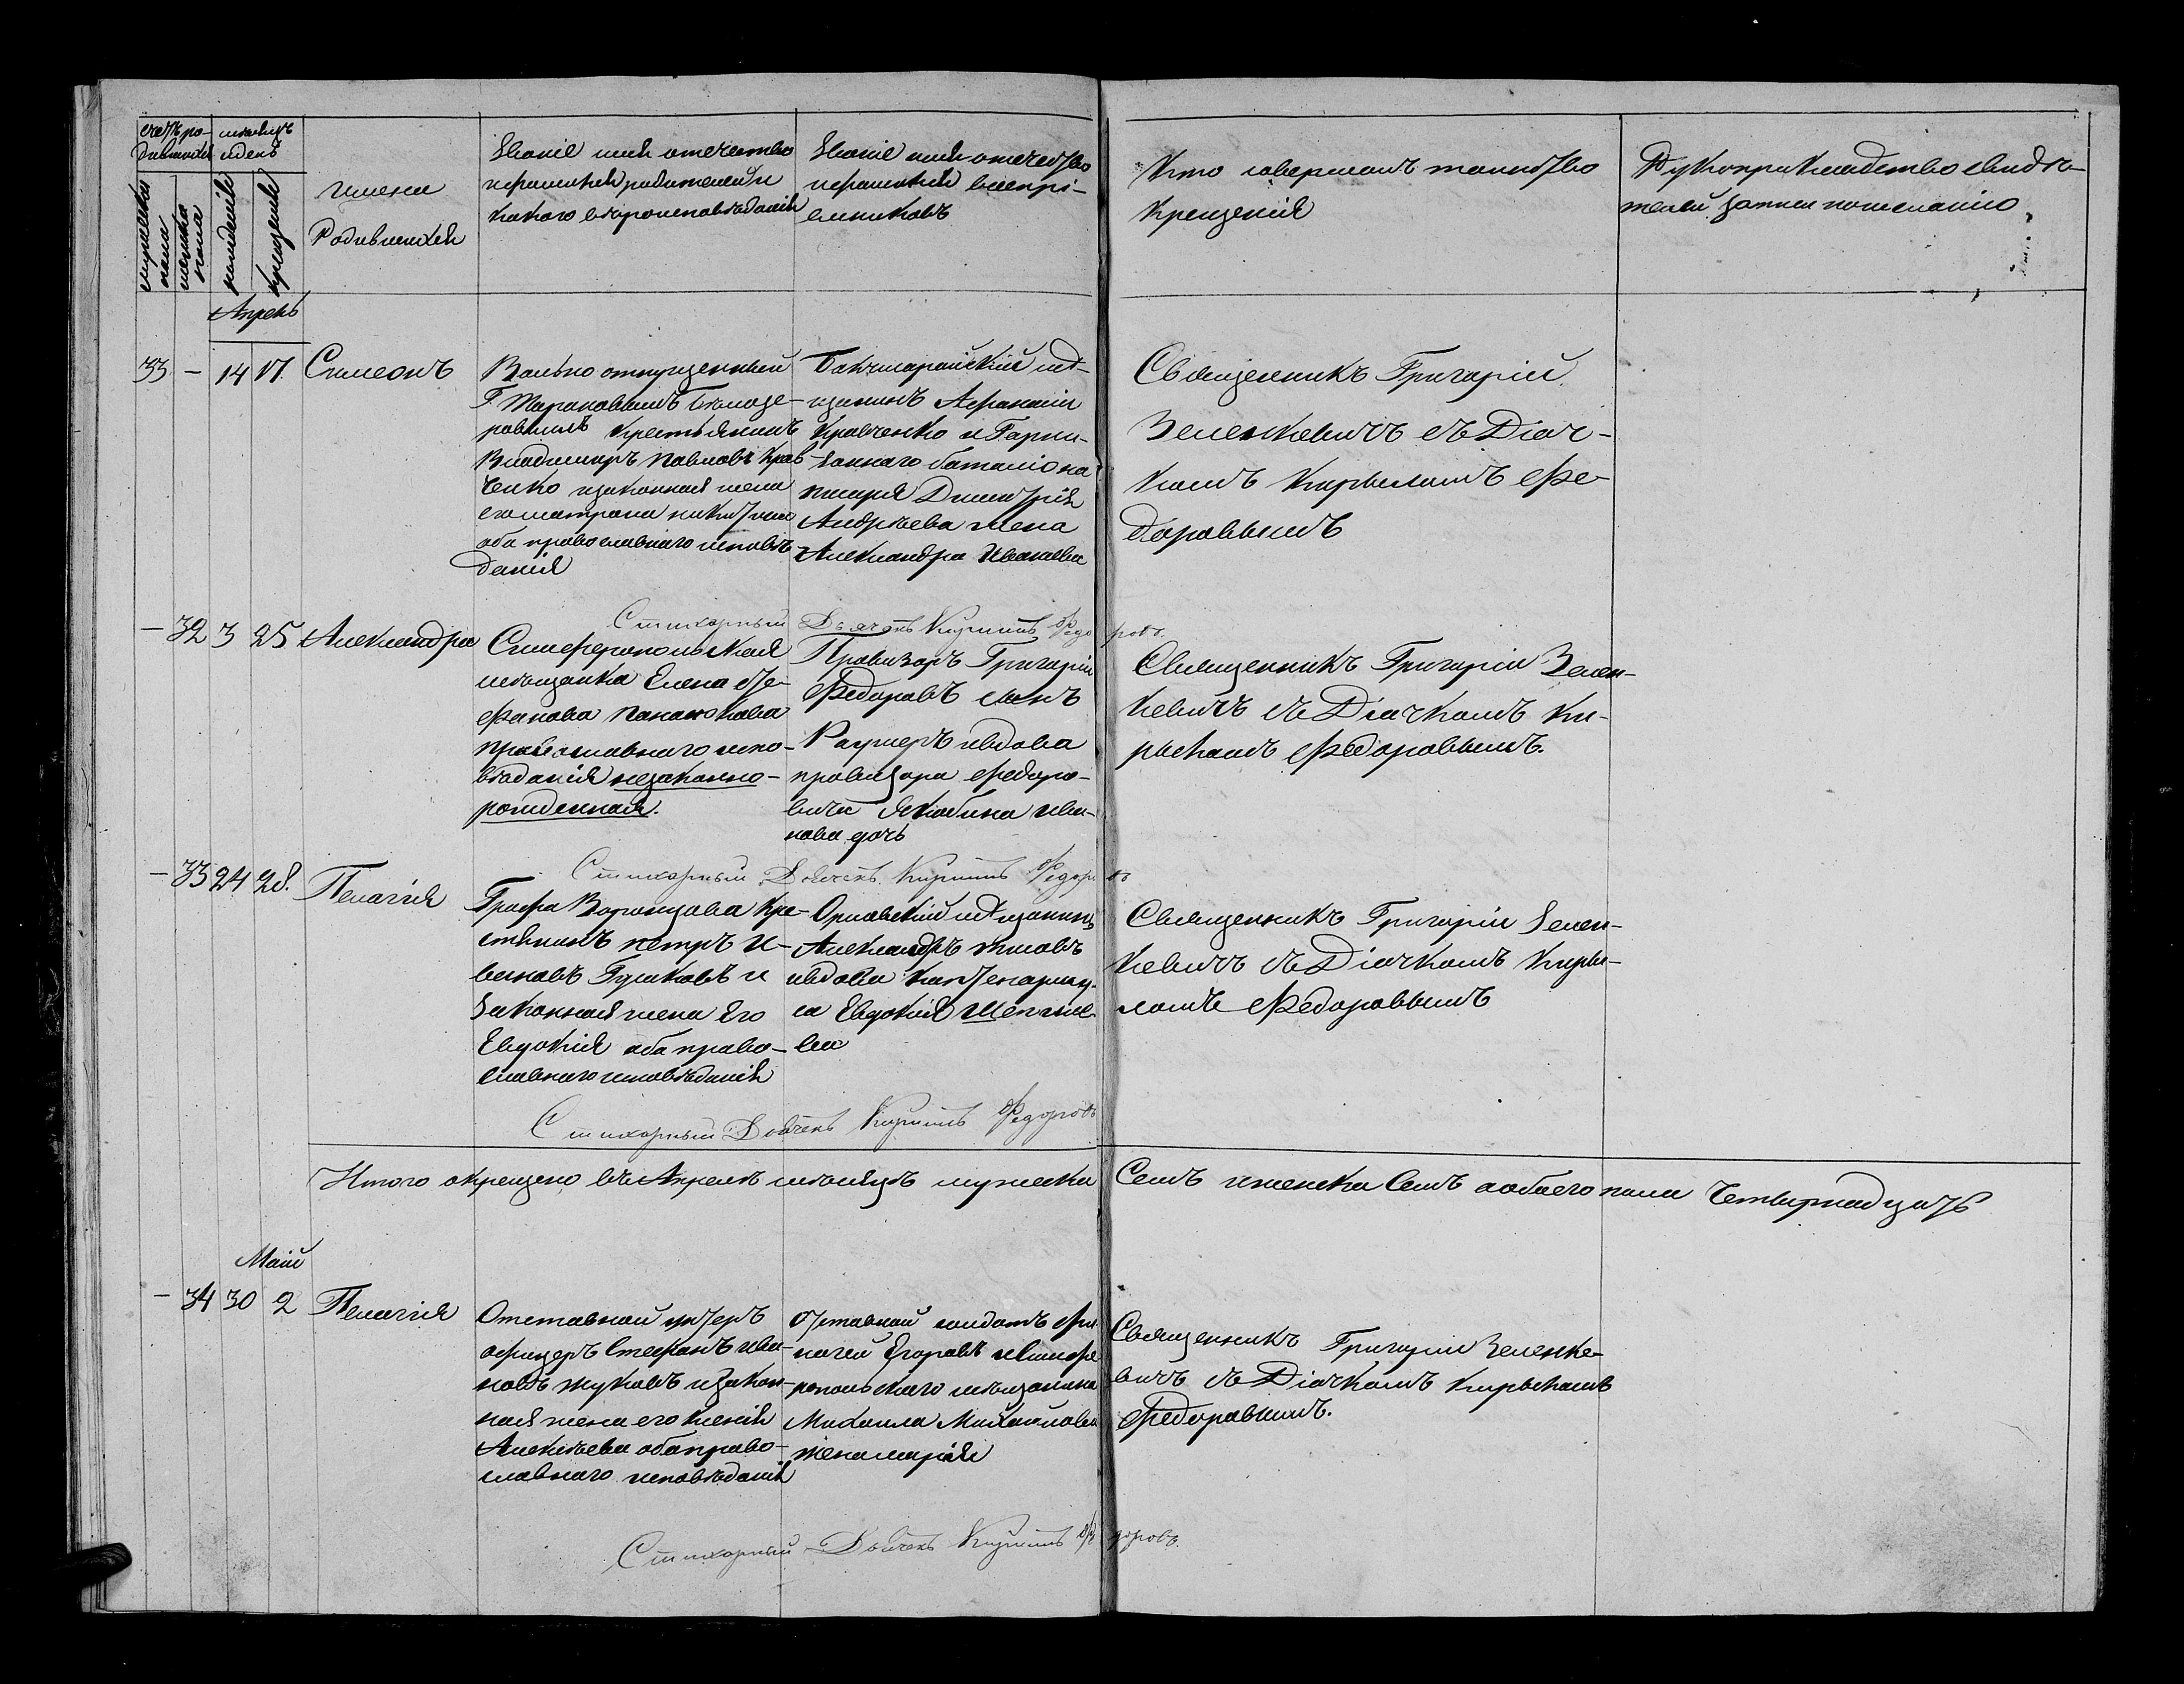 счетъ ро-
дившихся
мѣсяцъ
и день
мужеска
пола
женска
пола
рожденія
крещенія
имена
Родившихся
Званіе имя отечество
и фамилія родителей и
какого вѣроисповѣданія
Званіе имя отечество
и фамилія воспрі-
емниковъ
Кто совершалъ таинство
Крещенія
Рукоприкладство свидѣ-
телей записи по желанію
Апрель
33 – 14 17 Симеонъ
Вольно отпущенный
Г.
крестьянинъ
Владимиръ Павловъ Крав
ченко и законная жена
его матрона
оба православнаго исповѣ-
данія
Бакчисарайскій мѣ-
щанинъ Афанасій
Кравченко и Гарни-
зоннаго баталіона
писаря Димитрія
Андрѣева жена
Александра Иванова
Священникъ Григорій
Зеленкевичъ съ Діач-
комъ Кирыломъ Фе-
доравымъ
Стихорный Дьячекъ Кирилъ Федоровъ.
– 32 3 25 Александра
Симферопольская
мѣщанка Елена Сте-
фанова
православнаго испо-
вѣданія незаконно-
рожденная.
Правизоръ Григорій
Федоровъ сынъ
и вдова
правизора Федоро-
вича Якобина Ива-
нова дочь
Священникъ Григорій Зелен-
кевичъ съ Діачкомъ Ки-
рыломъ Федоровымъ.
Стихорный Дьячекъ Кирилъ Федоровъ
– 33 24 28. Пелагія
Графа Воронцова Кре-
стьянинъ петръ И-
вановъ Гушковъ и
Законная жена Его
Евдокія оба право-
славнаго исповѣданія
Орловскій мѣщанинъ
Александръ
и вдова
са Евдокія
ва
Священникъ Григорій Зелен-
кевичъ съ Діачкомъ Киры-
ломъ Федоровымъ
Стихорный Дьячекъ Кирилъ Федоровъ
Итого окрещено въ Апреле мѣсяцѣ мужеска Семъ и женска Семъ а обоего пола Четырнадцать
Маій
– 34 30 2 Пелагія
Отставной унтеръ
офицеръ Стефанъ Ива-
новъ Жуковъ и закон-
ная жена его Ксенія
Алексѣева оба право-
славнаго исповѣданія
Отставной солдатъ
Егоровъ и Симфе-
ропольскаго мѣщанина
Михаила Михайлова
жена марія
Священникъ Григорій Зеленке-
вичъ съ Діачкомъ Кирыломъ
Федоравымъ.
Стихорный Дьячекъ Кирилъ Федоровъ.